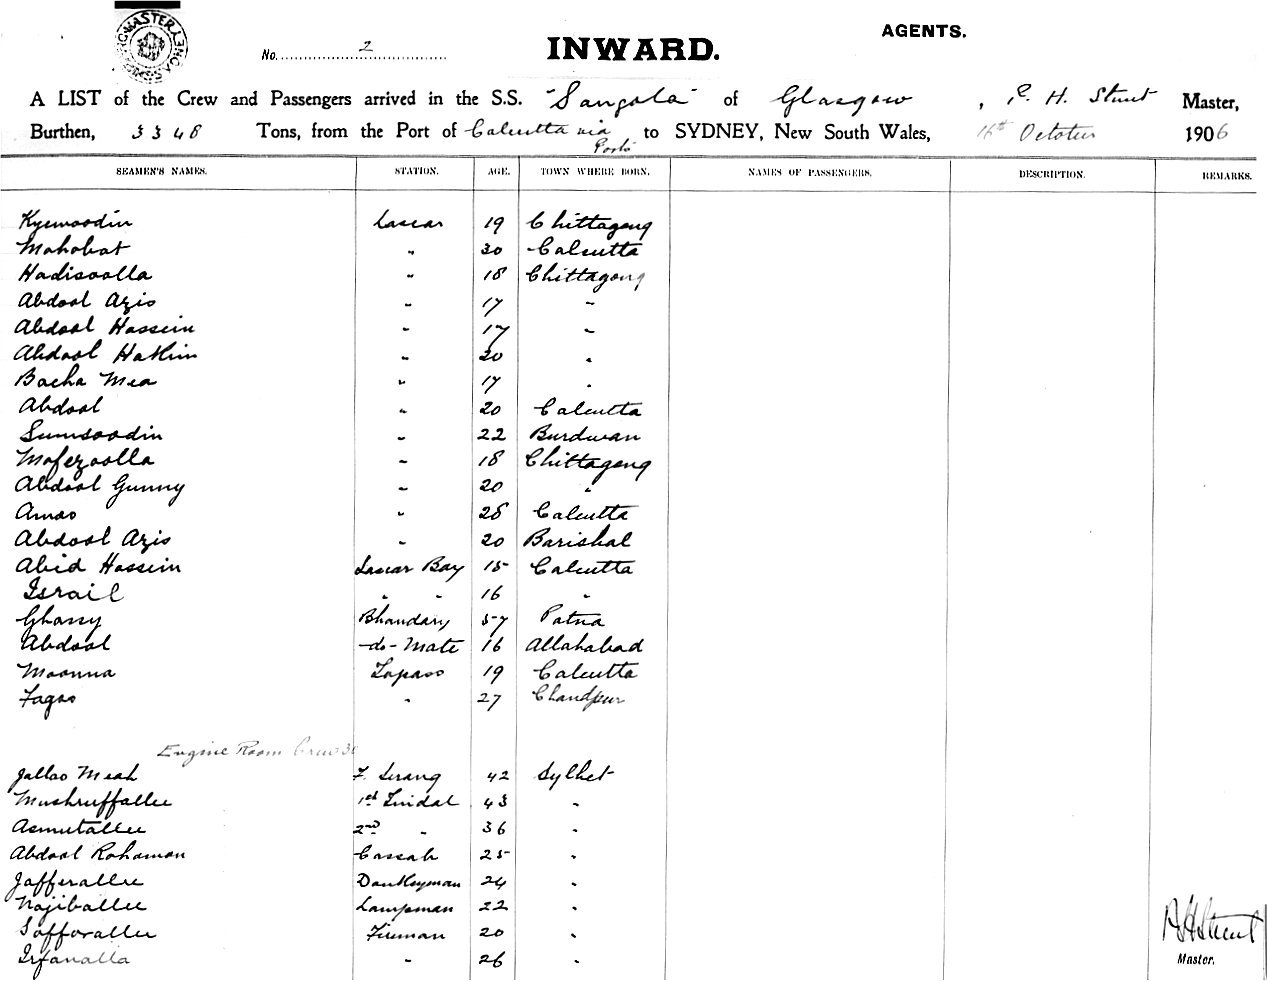 AGENTS.
No. 2
INWARD.
A LIST of the Crew and Passengers arrived in the S.S. "Sangola" of Glasgow, P. H. Stunt Master,
Burthen, 3348 Tons, from the Port of Calcutta via Ports to SYDNEY, New South Wales, 16th October 1906
SEAMEN'S NAMES. STATION. AGE. TOWN WHERE BORN. NAMES OF PASSENGERS. DESCRIPTION. REMARKS.
Kyewoodin Lascar 19 Chittagong
Mahobat " 30 Calcutta
Hadisoolla " 18 Chittagong
Abdool Azis " 17 "
Abdool Hossein " 17 "
Abdool Hakim " 20 "
Bacha Mea " 17 "
Abdool " 20 Calcutta
Sumsoodin " 22 Burdwan
Mofezoolla " 18 Chittagong
Abdool Gunny " 20 "
Amoo " 28 Calcutta
Abdool Azis " 20 Barishal
Abid Hossein Lascar Boy 15 Calcutta
Israil " " 16 "
Ghassy Bhandary 57 Patna
Abdool -do- Mate 16 Allahabad
Moonna Topass 19 Calcutta
Fagoo " 27 Chandpur
Engine Room Crew 30
Jalloo Meah F. Serang 42 Sylhet
Mushruffallee 1st Tindal 43 "
Asmutallee 2nd " 36 "
Abdool Rohamon Cassab 25 "
Jafferallee Donkeyman 24 "
Najiballee Lampman 22 "
Safforallee Fireman 20 "
Irfanalla " 26 "
Master.